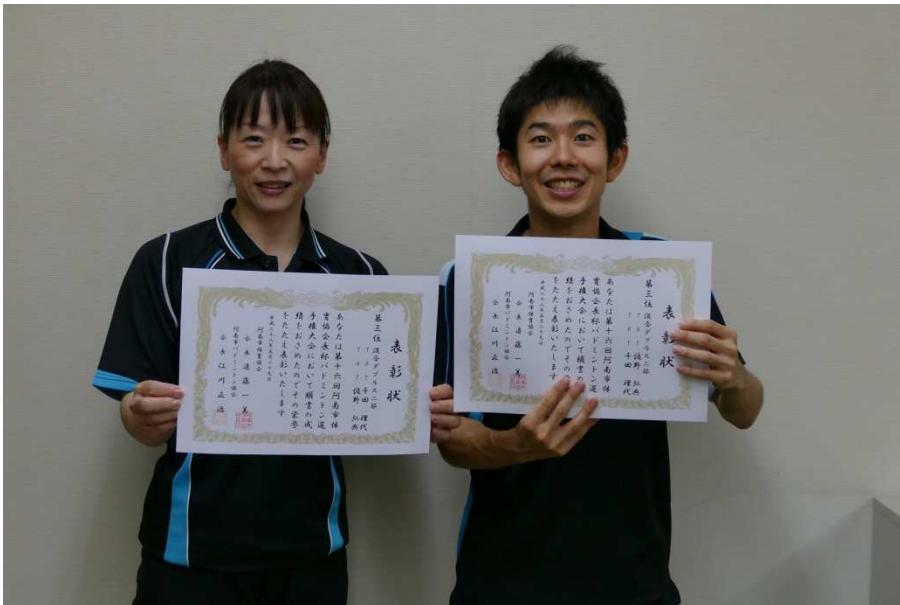 表彰状
第三位 混合ダブルス二部
平田 理代
佐野 弘典
あなたは第十六回阿南市体
育協会長杯バドミントン選
手権大会において頭書の成
績をおさめたのでその栄誉
をたたえ表彰いたします
平成二十八年五月二十九日
阿南市体育協会
会長 遠藤 一美
阿南市バドミントン協会
会長 江川 正治
表彰状
第三位 混合ダブルス二部
佐野 弘典
平田 理代
あなたは第十六回阿南市体
育協会長杯バドミントン選
手権大会において頭書の
績をおさめたのでその栄
をたたえ表彰いたします
平成二十八年五月二十九日
阿南市体育協会
会長 遠藤 一美
阿南市バドミントン協会
会長 江川 正治